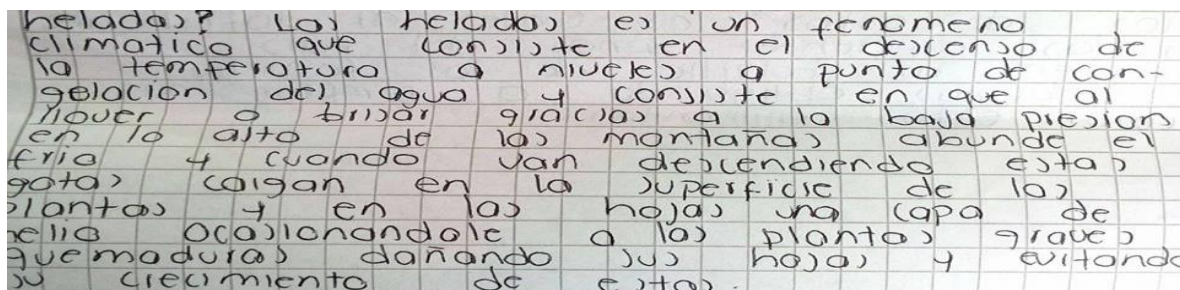 heladas? Las heladas es un fenomeno
climatico que consiste en el descenso de
la temperatura a niveles a punto de con-
gelacion del agua y consiste en que al
llover o brisar gracias a la baja presion
en lo alto de las montañas abunde el
frio y cuando van descendiendo estas
gotas caigan en la superficie de las
plantas y en las hojas una capa de
helio ocasionandole a las plantas graves
quemaduras dañando sus hojas y evitando
su crecimiento de estas.